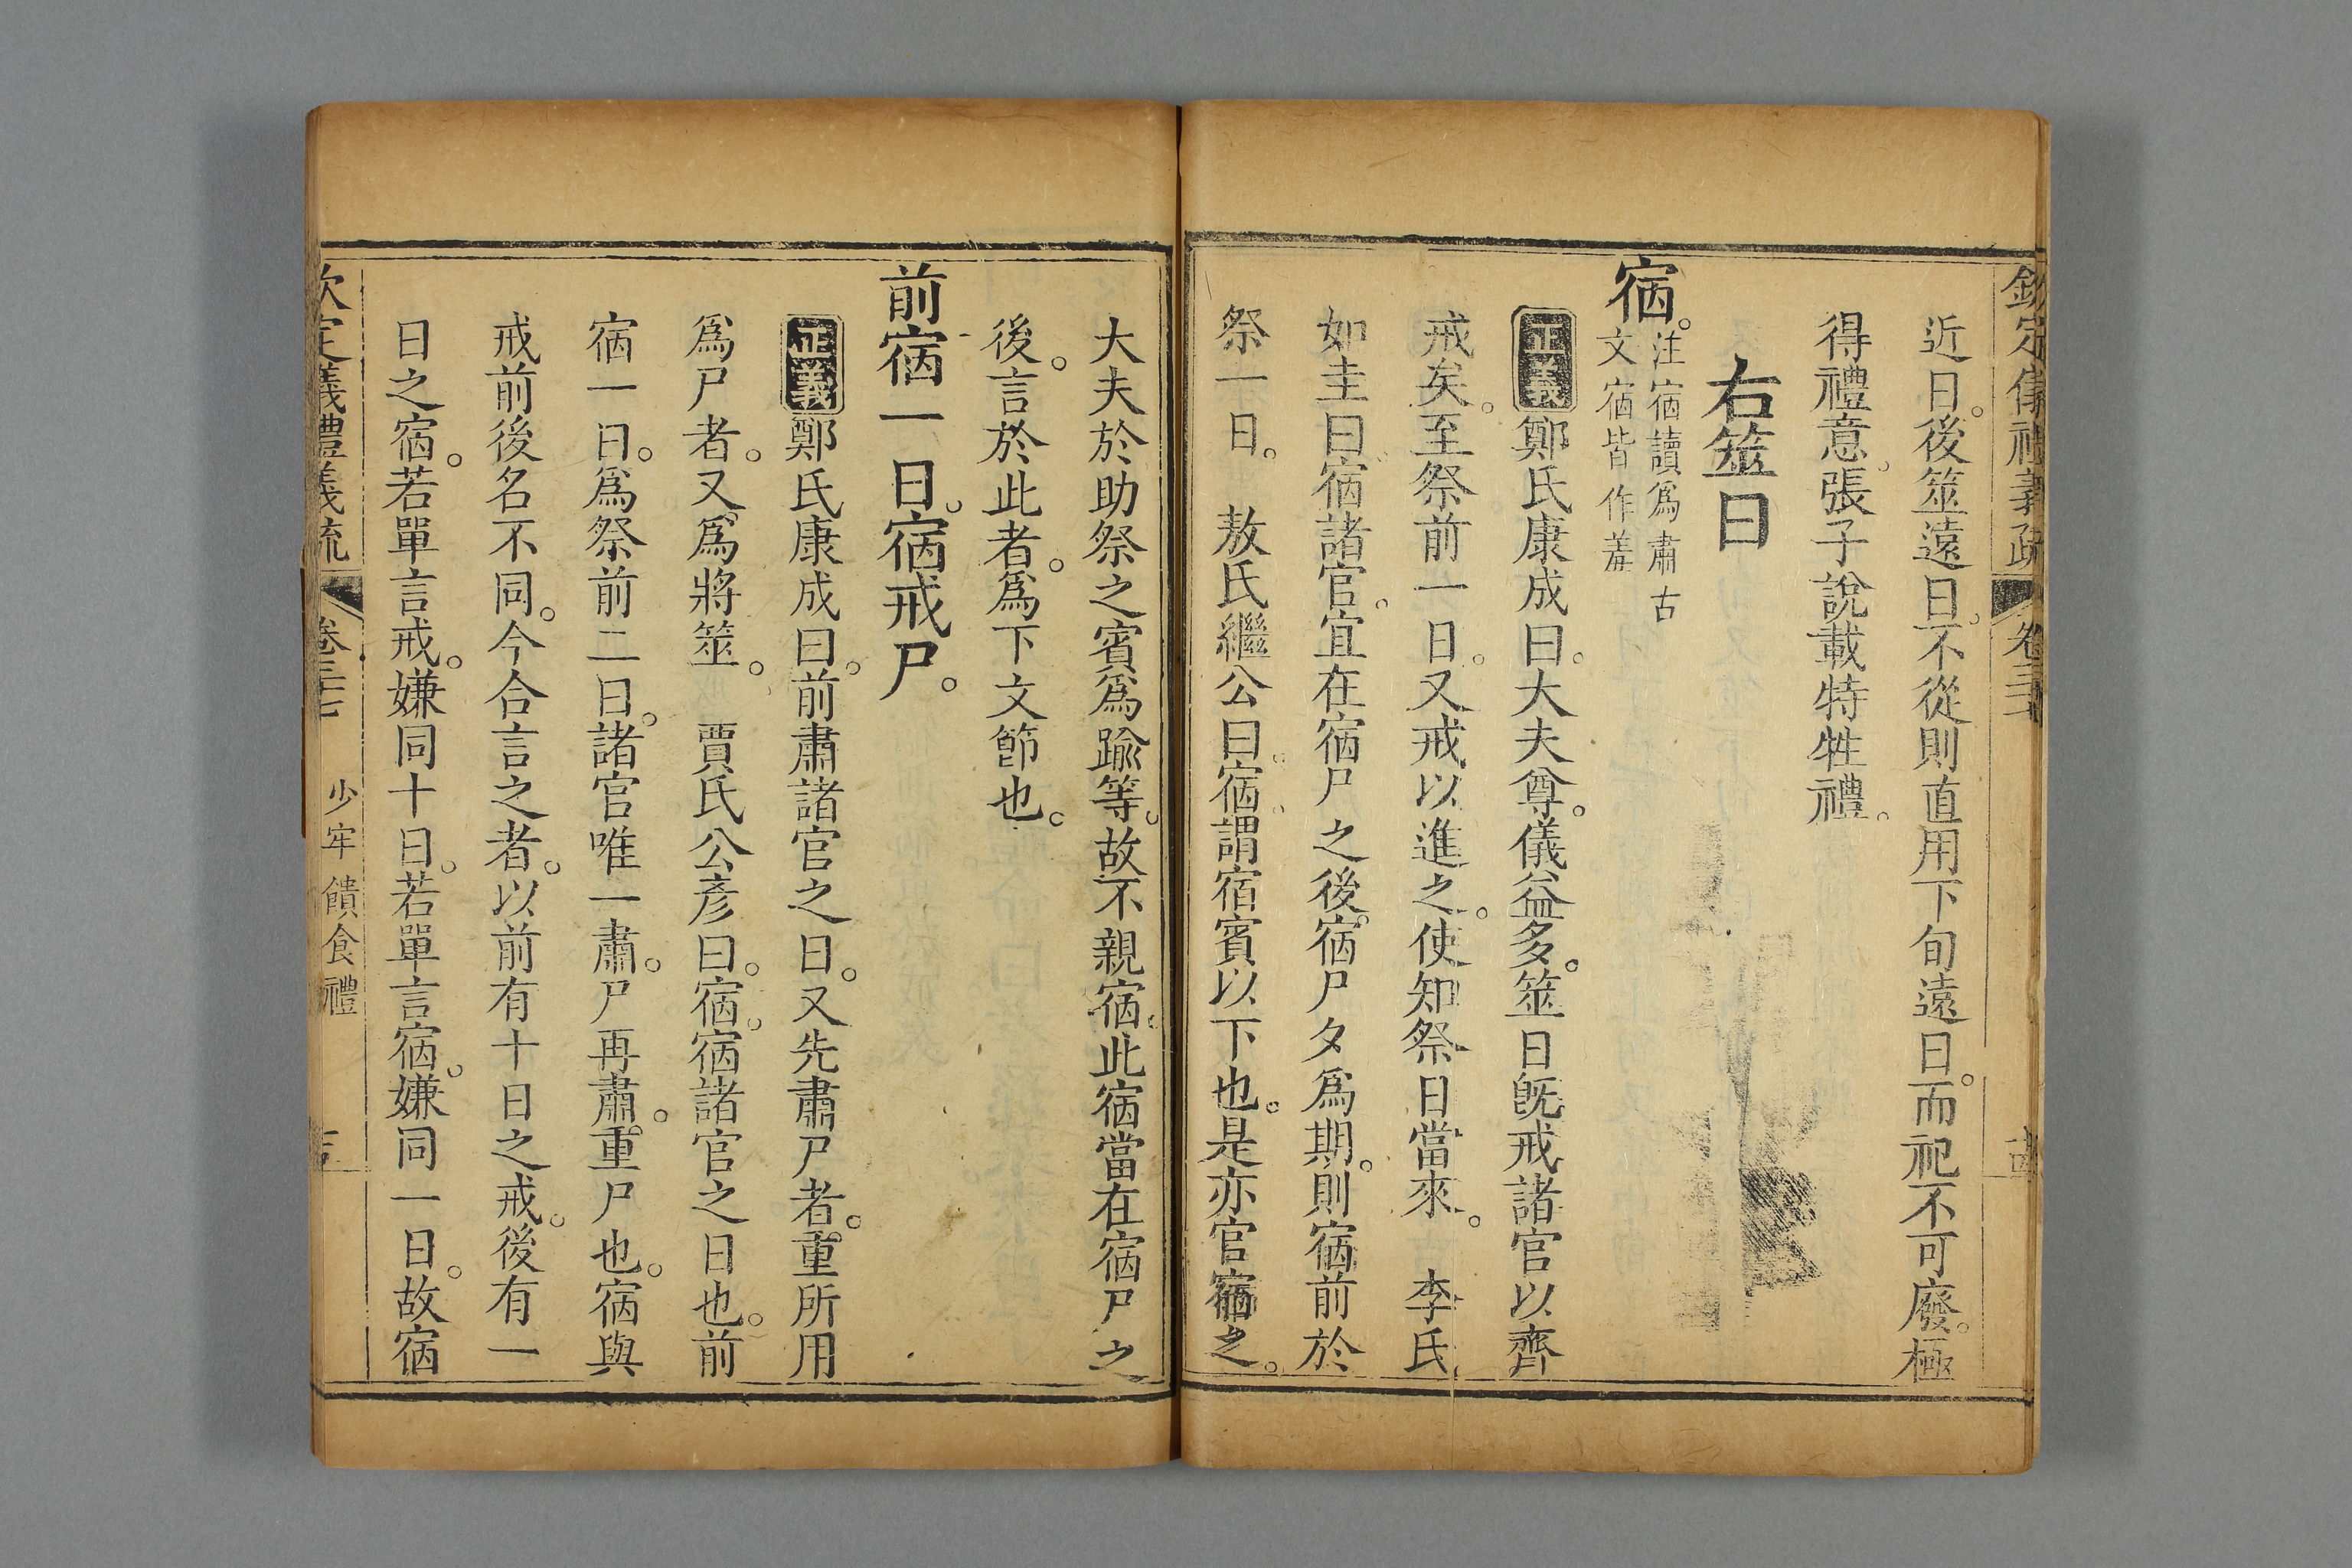 欽定儀禮義疏 卷三十七
近日。後筮遠日。不從則直用下旬遠日。而祀不可廢。極
得禮意。張子說載特牲禮。
右筮日
宿。注宿讀爲肅古
文宿皆作羞
正義鄭氏康成曰。大夫尊。儀益多。筮日既戒諸官以齊
戒矣。至祭前一日。又戒以進之。使知祭日當來。 李氏
如圭曰。宿諸官。宜在宿尸之後。宿尸夕爲期。則宿前於
祭一日。 敖氏繼公曰。宿。謂宿賓以下也。是亦官宿之。
大夫於助祭之賓爲踰等。故不親宿。此宿當在宿尸之
後。言於此者。爲下文節也。
前宿一日。宿戒尸。
正義鄭氏康成曰。前肅諸官之日。又先肅尸者。重所用
爲尸者。又爲將筮。 賈氏公彥曰。宿。宿諸官之日也。前
宿一日。爲祭前二日。諸官唯一肅。尸再肅。重尸也。宿與
戒前後名不同。今合言之者。以前有十日之戒。後有一
日之宿。若單言戒。嫌同十日。若單言宿。嫌同一日。故宿
欽定儀禮義疏 卷三十七 少牢饋食禮